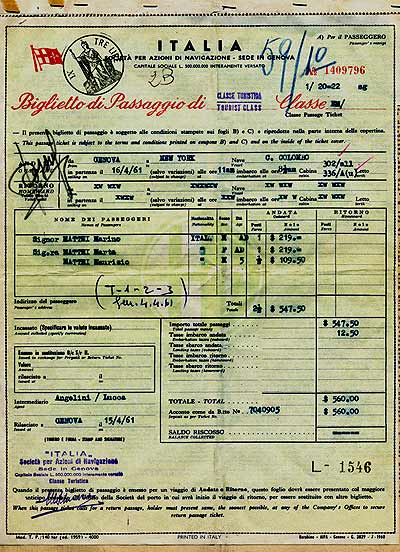 A) Per il PASSEGGERO
Passenger's coupon
ITALIA
SOCIETÀ PER AZIONI DI NAVIGAZIONE - SEDE IN GENOVA
CAPITALE SOCIALE L. 500.000.000 INTERAMENTE VERSATO
TRE LIRE
59/10
2B
№ 1409796
1/ 20=22 mg
Biglietto di Passaggio di CLASSE TURISTICA Classe
TOURIST CLASS
Classe Passage Ticket
Il presente biglietto di passaggio è soggetto alle condizioni stampate sui fogli B) e C) e riprodotte nella parte interna della copertina.
This passage ticket is subject to the terms and conditions printed on coupons B) and C) and on the inside of the ticket cover.
GENOVA NEW YORK Nave C. COLOMBO 302/all
in partenza il 16/4/61 (salvo variazioni) alle ore 11am Cabina 336/A(u) Letto
RITORNO
HOMEWARD
XW WXW XW WXW
in partenza il XW WXW (salvo variazioni) alle ore Cabina XW WXW Letto
NOME DEI PASSEGGERI
Names of Passengers
Nazionalità Sesso Età ANDATA RITORNO
Posti Nolo Posti Nolo
Signor MATTEI Marino ITAL. M AD 1 $ 219.=
Sig.ra MATTEI Marta " F AD 1 $ 219.=
MATTEI Maurizio " M 5 ½ $ 109.50
(T-1-2-3
4.4.61)
Indirizzo del passeggero
Passenger's address
Totali 2½ $ 547.50
Totals
Incassato (Specificare in valuta incassata)
Importo totale passaggi $ 547.50
Total passage money
Tasse imbarco andata 12.50
Embarkation taxes (outward)
Tasse sbarco andata
Landing taxes (outward)
Tasse imbarco ritorno
Embarkation taxes (homeward)
Tasse sbarco ritorno
Landing taxes (homeward)
Emesso in sostituzione B/c S/v N.
Issued in exchange for Prepaid or Return Ticket No.
Valore
Amount
rilasciato a il
Issued at on
Intermediario Angelini / Lucca
Agent
TOTALE - TOTAL $ 560.00
Acconto come da B.tto N° 7040905 $ 560.00
Deposit as per Ticket No.
Rilasciato a GENOVA il 15/4/61
Issued at on
(TIMBRO E FIRMA - STAMP AND SIGNATURE)
SALDO RISCOSSO
BALANCE COLLECTED
"ITALIA"
Società per Azioni di Navigazione
Sede in Genova
Capitale Sociale L. 500.000.000 interamente versato
Classe Turistica
L- 1546
Quando il presente biglietto di passaggio è emesso per un viaggio di Andata e Ritorno, questo foglio dovrà essere presentato col maggiore
anticipo della Società del porto in cui avrà inizio il viaggio di ritorno, per essere sostituito con altro biglietto.
When this passage ticket calls for a return passage, holder must present same, the soonest possible, at any of the Company's Offices to secure
return passage ticket.
Mod. T. P./140 ter (ed. 1959) - 4000
PRINTED IN ITALY